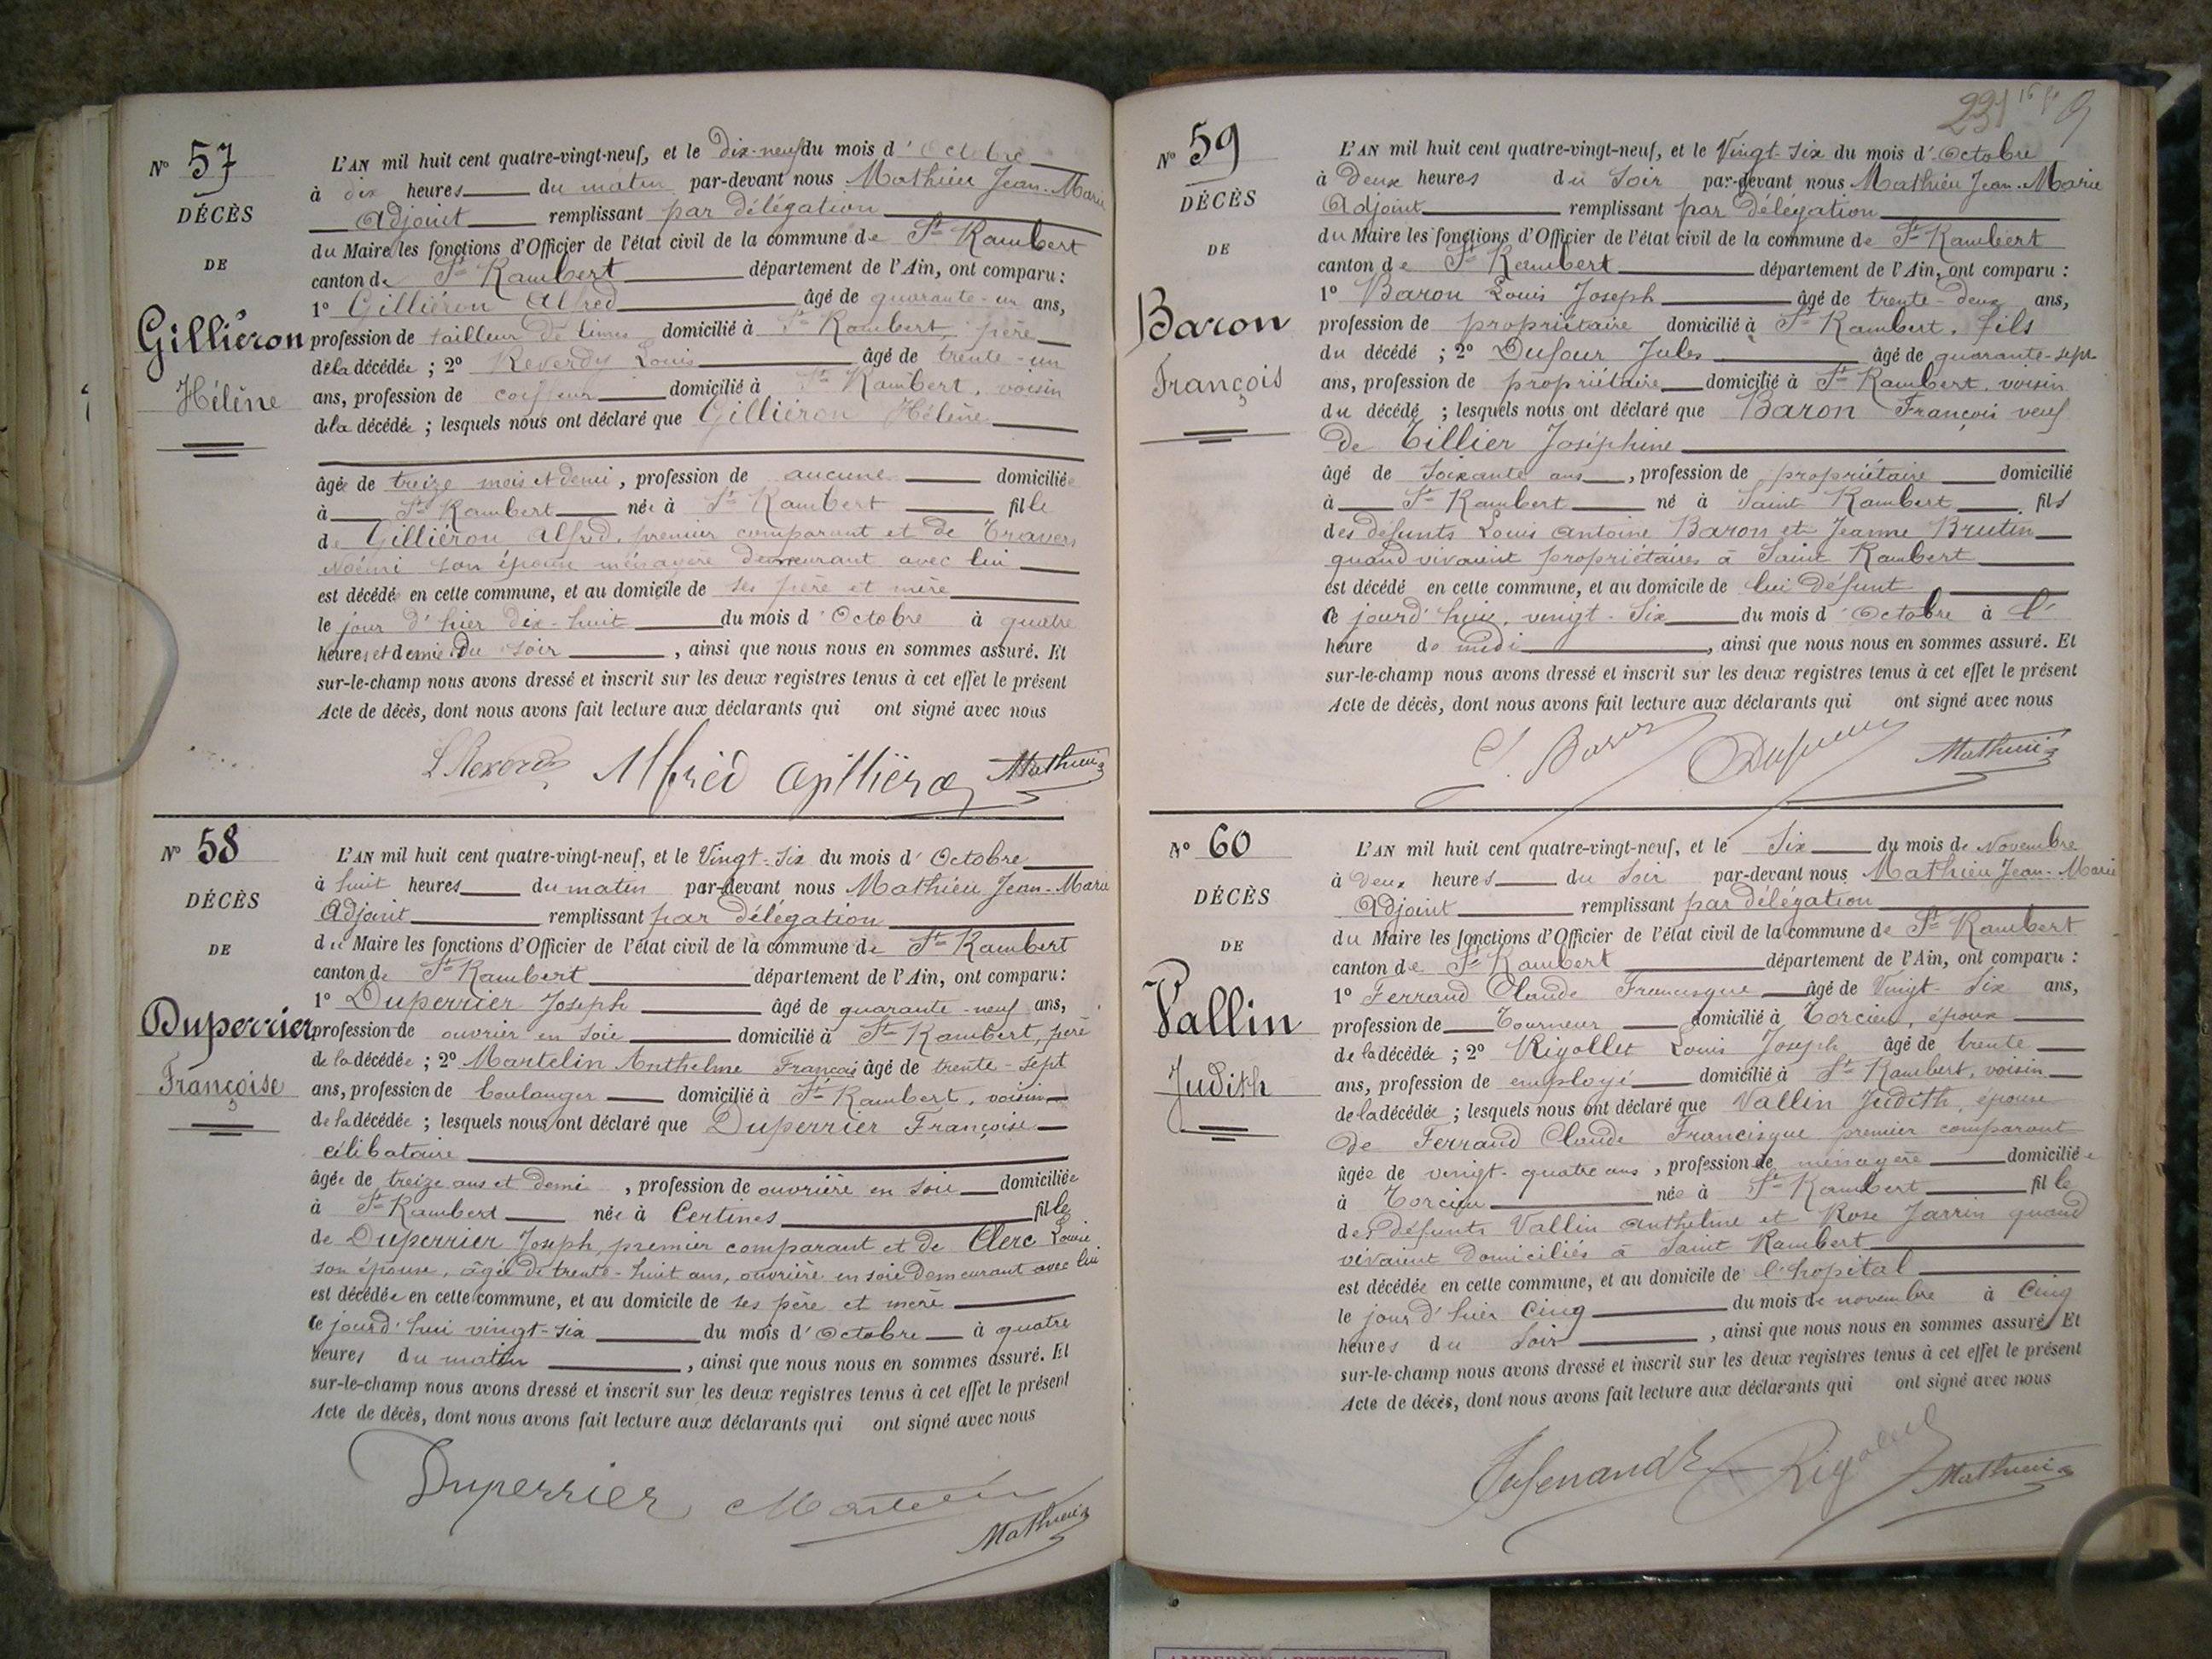 N° 57
DÉCÈS
DE
Gilliéron
Hélène
L'AN mil huit cent quatre-vingt-neuf, et le dix-neuf du mois d'Octobre
à dix heures du matin par-devant nous Mathieu Jean-Marie
Adjoint remplissant par délégation
du Maire les fonctions d'Officier de l'état civil de la commune de St Rambert
canton de St Rambert département de l'Ain, ont comparu :
1° Gilliéron Alfred âgé de quarante-un ans,
profession de tailleur de limes domicilié à St Rambert, père
de la décédée ; 2° Reverdy Louis âgé de trente-un
ans, profession de coiffeur domicilié à St Rambert, voisin
de la décédée ; lesquels nous ont déclaré que Gilliéron Hélène
âgée de treize mois et demi, profession de aucune domiciliée
à St Rambert née à St Rambert fille
de Gilliéron Alfred, premier comparant et de Travers
Noémi son épouse ménagère demeurant avec lui
est décédée en cette commune, et au domicile de ses père et mère
le jour d'hier dix-huit du mois d'Octobre à quatre
heures et demie du soir, ainsi que nous nous en sommes assuré. Et
sur-le-champ nous avons dressé et inscrit sur les deux registres tenus à cet effet le présent
Acte de décès, dont nous avons fait lecture aux déclarants qui ont signé avec nous
Alfred Gilliéron Mathieu
N° 58
DÉCÈS
DE
Duperrier
Françoise
L'AN mil huit cent quatre-vingt-neuf, et le Vingt-six du mois d'Octobre
à huit heures du matin par-devant nous Mathieu Jean-Marie
Adjoint remplissant par délégation
du Maire les fonctions d'Officier de l'état civil de la commune de St Rambert
canton de St Rambert département de l'Ain, ont comparu :
1° Duperrier Joseph âgé de quarante-neuf ans,
profession de ouvrier en soie domicilié à St Rambert, père
de la décédée ; 2° Martelin Anthelme François âgé de trente-sept
ans, profession de boulanger domicilié à St Rambert, voisin
de la décédée ; lesquels nous ont déclaré que Duperrier Françoise
célibataire
âgée de treize ans et demi, profession de ouvrière en soie domiciliée
à St Rambert née à Certines fille
de Duperrier Joseph, premier comparant et de Clerc Louise
son épouse, âgée de trente-huit ans, ouvrière en soie demeurant avec lui
est décédée en cette commune, et au domicile de ses père et mère
ce jourd'hui vingt-six du mois d'Octobre à quatre
heures du matin, ainsi que nous nous en sommes assuré. Et
sur-le-champ nous avons dressé et inscrit sur les deux registres tenus à cet effet le présent
Acte de décès, dont nous avons fait lecture aux déclarants qui ont signé avec nous
Duperrier Martelin
Mathieu
N° 59
DÉCÈS
DE
Baron
François
L'AN mil huit cent quatre-vingt-neuf, et le Vingt-six du mois d'Octobre
à Deux heures du soir par-devant nous Mathieu Jean-Marie
Adjoint remplissant par délégation
du Maire les fonctions d'Officier de l'état civil de la commune de St Rambert
canton de St Rambert département de l'Ain, ont comparu :
1° Baron Louis Joseph âgé de trente-deux ans,
profession de propriétaire domicilié à St Rambert, fils
du décédé ; 2° Dufour Jules âgé de quarante-sept
ans, profession de propriétaire domicilié à St Rambert, voisin
du décédé ; lesquels nous ont déclaré que Baron François veuf
de Tillier Joséphine
âgé de soixante ans, profession de propriétaire domicilié
à St Rambert né à Saint Rambert fils
des défunts Louis Antoine Baron et Jeanne Brutin
quand vivaient propriétaires à Saint Rambert
est décédé en cette commune, et au domicile de lui défunt
ce jourd'hui, vingt-six du mois d'Octobre à l'
heure de midi, ainsi que nous nous en sommes assuré. Et
sur-le-champ nous avons dressé et inscrit sur les deux registres tenus à cet effet le présent
Acte de décès, dont nous avons fait lecture aux déclarants qui ont signé avec nous
Baron Dufour Mathieu
N° 60
DÉCÈS
DE
Vallin
Judith
L'AN mil huit cent quatre-vingt-neuf, et le Six du mois de Novembre
à deux heures du soir par-devant nous Mathieu Jean-Marie
Adjoint remplissant par délégation
du Maire les fonctions d'Officier de l'état civil de la commune de St Rambert
canton de St Rambert département de l'Ain, ont comparu :
1° Ferrand Claude Francisque âgé de Vingt-six ans,
profession de Tourneur domicilié à Torcieu, époux
de la décédée ; 2° Rigollet Louis Joseph âgé de trente
ans, profession de employé domicilié à St Rambert, voisin
de la décédée ; lesquels nous ont déclaré que Vallin Judith, épouse
de Ferrand Claude Francisque premier comparant
âgée de vingt-quatre ans, profession de ménagère domiciliée
à Torcieu née à St Rambert fille
des défunts Vallin Anthelme et Rose Jarrin quand
vivaient domiciliés à Saint Rambert
est décédée en cette commune, et au domicile de l'hopital
le jour d'hier Cinq du mois de novembre à Cinq
heures du soir, ainsi que nous nous en sommes assuré. Et
sur-le-champ nous avons dressé et inscrit sur les deux registres tenus à cet effet le présent
Acte de décès, dont nous avons fait lecture aux déclarants qui ont signé avec nous
Rigollet Mathieu